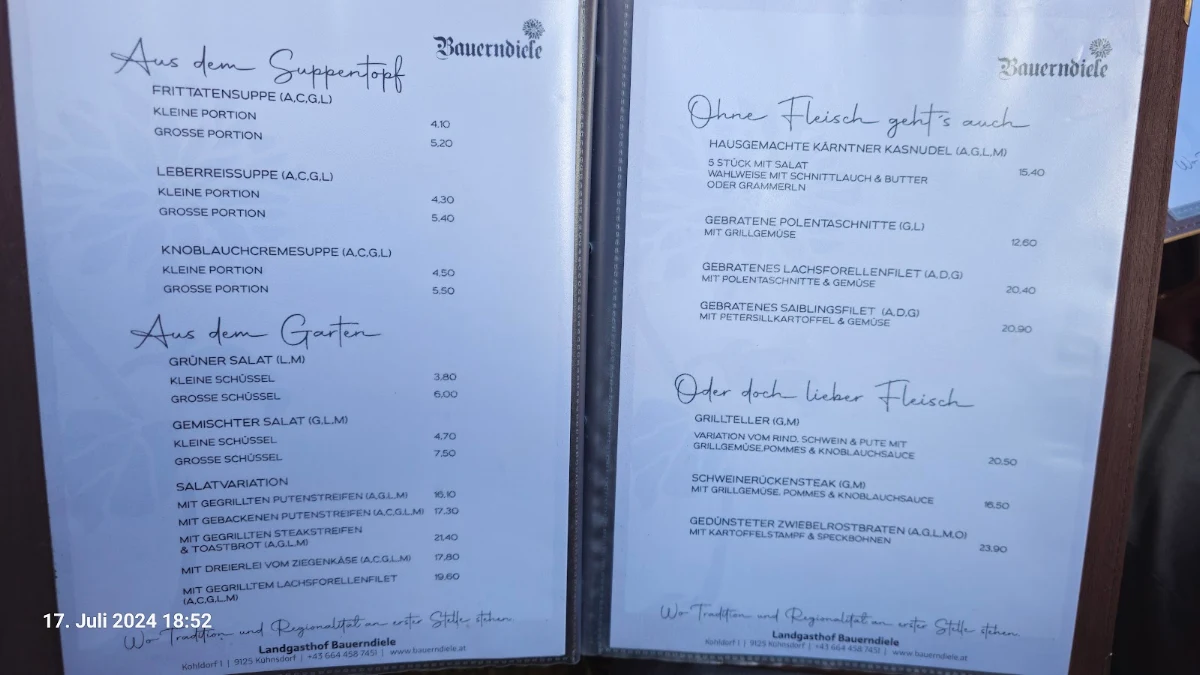 Bauerndiele
Aus dem Suppentopf
FRITTATENSUPPE (A,C,G,L)
KLEINE PORTION 4,10
GROSSE PORTION 5,20
LEBERREISSUPPE (A,C,G,L)
KLEINE PORTION 4,30
GROSSE PORTION 5,40
KNOBLAUCHCREMESUPPE (A,C,G,L)
KLEINE PORTION 4,50
GROSSE PORTION 5,50
Aus dem Garten
GRÜNER SALAT (L,M)
KLEINE SCHÜSSEL 3,80
GROSSE SCHÜSSEL 6,00
GEMISCHTER SALAT (G,L,M)
KLEINE SCHÜSSEL 4,70
GROSSE SCHÜSSEL 7,50
SALATVARIATION
MIT GEGRILLTEN PUTENSTREIFEN (A,G,L,M) 16,10
MIT GEBACKENEN PUTENSTREIFEN (A,C,G,L,M) 17,30
MIT GEGRILLTEN STEAKSTREIFEN
& TOASTBROT (A,G,L,M) 21,40
MIT DREIERLEI VOM ZIEGENKÄSE (A,C,G,L,M) 17,80
MIT GEGRILLTEM LACHSFORELLENFILET 19,60
(A,C,G,L,M)
17. Juli 2024 18:52
Wo Tradition und Regionalität an erster Stelle stehen.
Landgasthof Bauerndiele
Kohldorf 1 | 9125 Kühnsdorf | +43 664 458 7451 | www.bauerndiele.at
Bauerndiele
Ohne Fleisch geht's auch
HAUSGEMACHTE KÄRNTNER KASNUDEL (A,G,L,M)
5 STÜCK MIT SALAT 15,40
WAHLWEISE MIT SCHNITTLAUCH & BUTTER
ODER GRAMMERLN
GEBRATENE POLENTASCHNITTE (G,L)
MIT GRILLGEMÜSE 12,60
GEBRATENES LACHSFORELLENFILET (A,D,G)
MIT POLENTASCHNITTE & GEMÜSE 20,40
GEBRATENES SAIBLINGSFILET (A,D,G)
MIT PETERSILLKARTOFFEL & GEMÜSE 20,90
Oder doch lieber Fleisch
GRILLTELLER (G,M)
VARIATION VOM RIND, SCHWEIN & PUTE MIT
GRILLGEMÜSE,POMMES & KNOBLAUCHSAUCE 20,50
SCHWEINERÜCKENSTEAK (G,M)
MIT GRILLGEMÜSE, POMMES & KNOBLAUCHSAUCE 16,50
GEDÜNSTETER ZWIEBELROSTBRATEN (A,G,L,M,O)
MIT KARTOFFELSTAMPF & SPECKBOHNEN 23,90
Wo Tradition und Regionalität an erster Stelle stehen.
Landgasthof Bauerndiele
Kohldorf 1 | 9125 Kühnsdorf | +43 664 458 7451 | www.bauerndiele.at